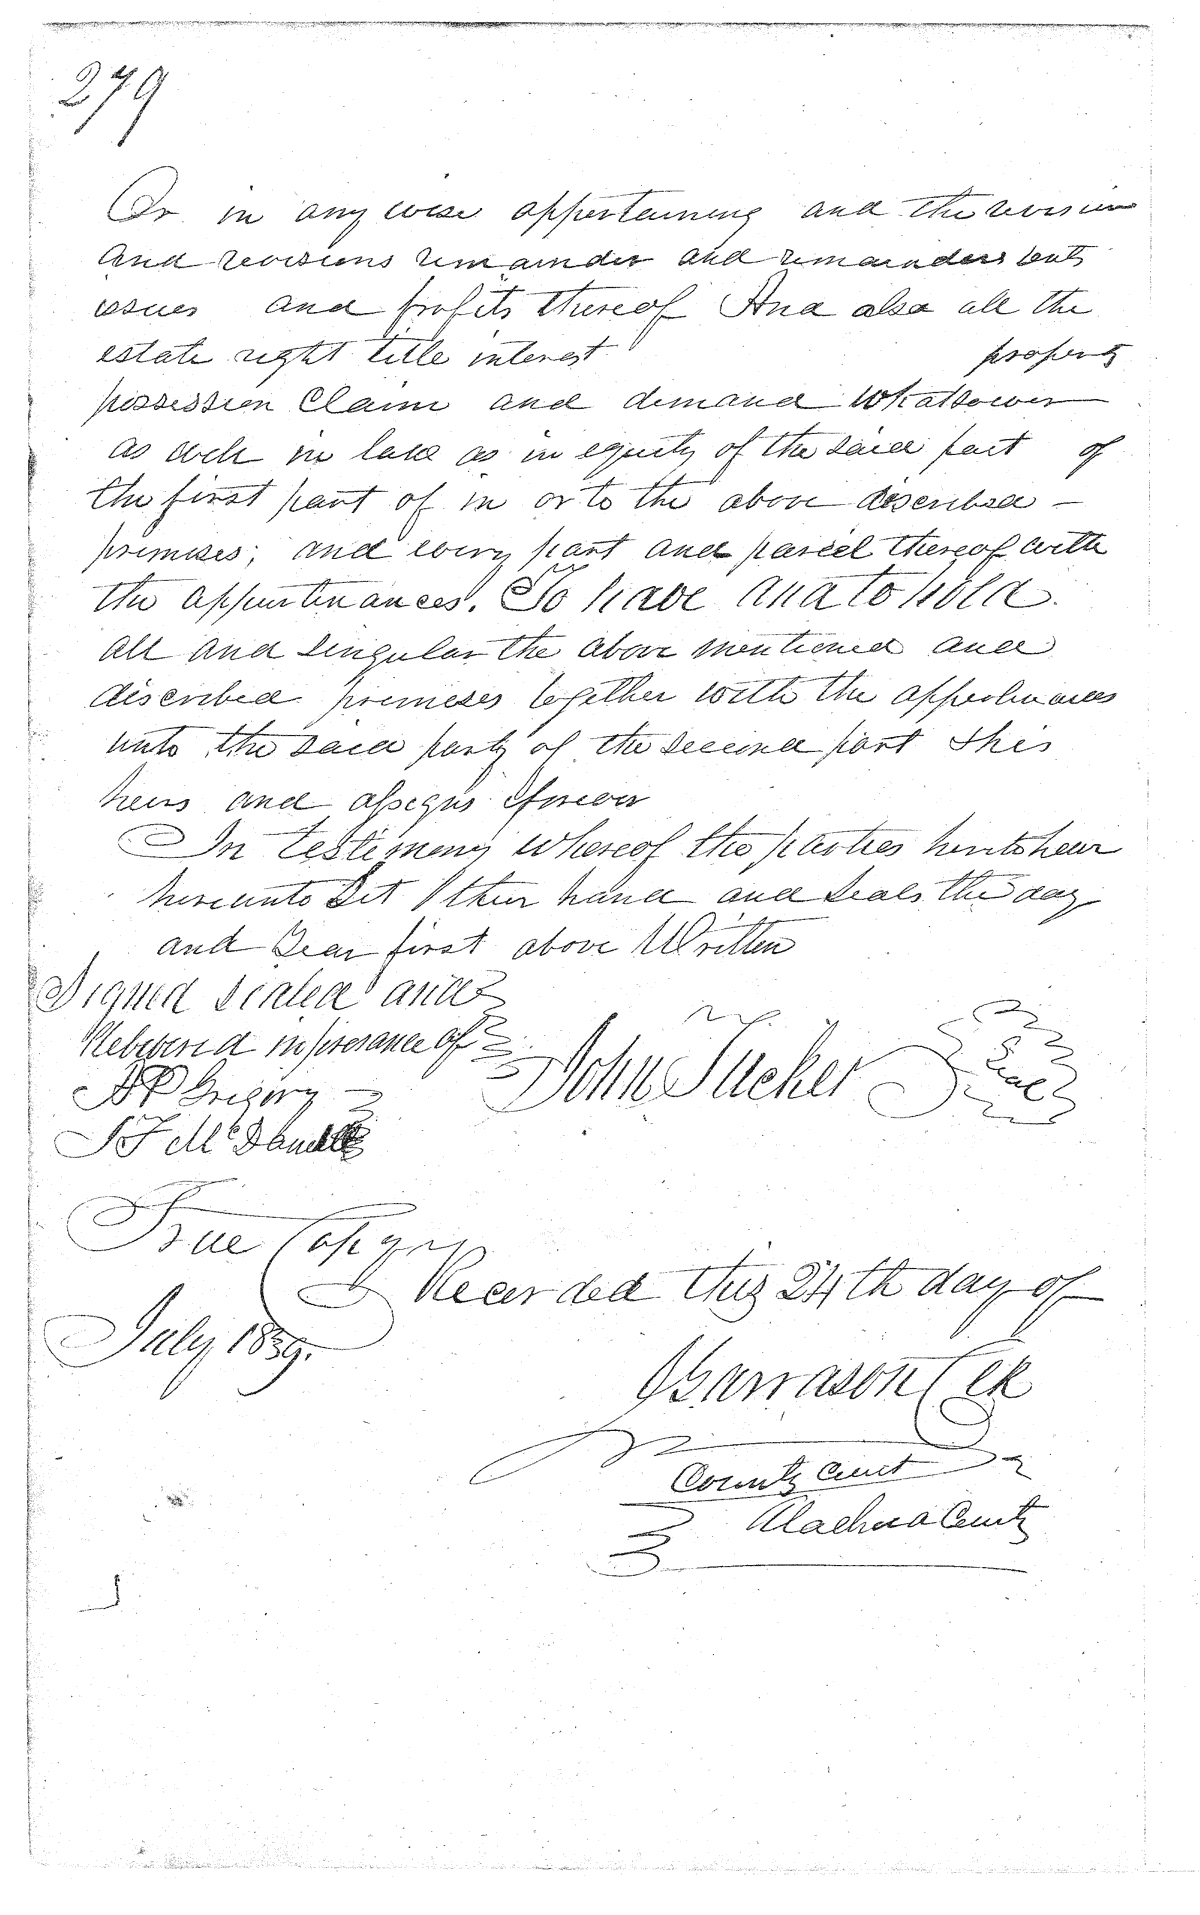 279
Or in any wise appertaining and the revision
and revisions remainder and remainders rents
issues and profits thereof And also all the
estate right title interest property
possession Claim and demand Whatsoever
as well in law as in equity of the said part of
the first part of in or to the above discribed -
premises; and every part and parcel thereof with
the appurtinances. To have and to hold.
all and singular the above mentioned and
discribed premises together with the appertinances
unto the said party of the second part & his
heirs and assigns forever
In testimony whereof the parties hereto have
hereunto Set their hand and Seals the day
and Year first above Written
Signed Sealed and
Delivered in presance of
John Tucker Seal
A P Gregory
S F McDonald
True Copy
Recorded this 24th day of
July 1839.
Garrason Clk
County Court
Alachua County